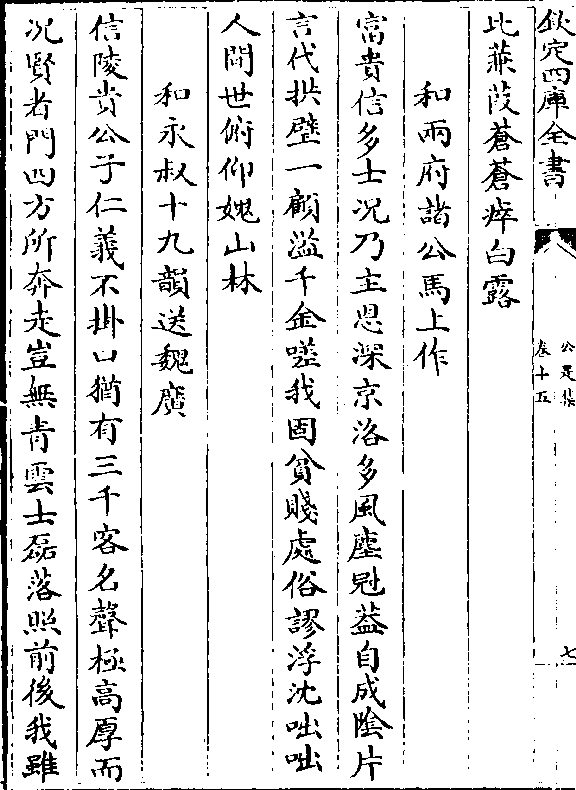 欽定四庫全書
公是集
卷十五
七
比蒹葭蒼蒼瘁白露
和兩府諸公馬上作
富貴信多士况乃主恩深京洛多風塵冠葢自成陰片
言代拱璧一顧溢千金嗟我固貧賤處俗謬浮沈咄咄
人間世俯仰媿山林
和永叔十九韻送魏廣
信陵貴公子仁義不掛口猶有三千客名聲極高厚而
况賢者門四方所奔走豈無青雲士磊落照前後我雖